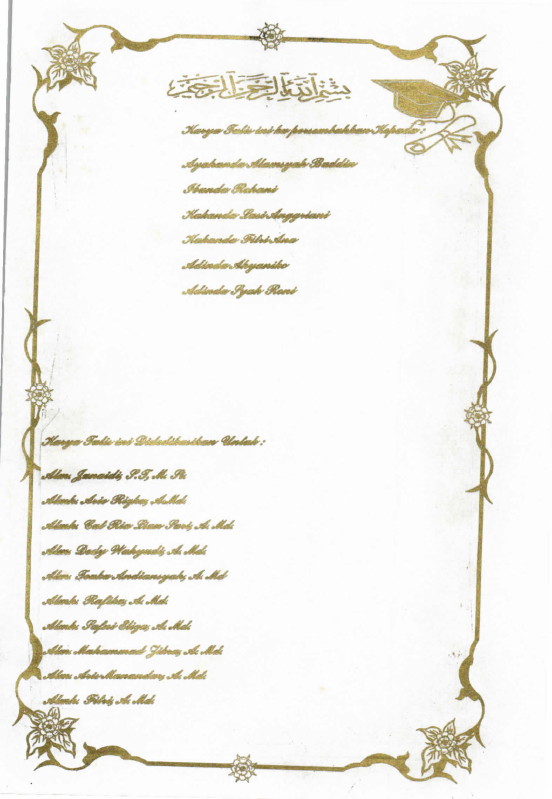 بسم الله الرحمن الرحيم
Karya Tulis ini ku persembahkan Kepada :
Ayahanda Alamsyah Baddin
Ibunda Rohani
Kakanda Susi Anggriani
Kakanda Fitri Ana
Adinda
Adinda Syah Roni
Karya Tulis ini Didedikasikan Untuk :
Alm. Junaidi, S.T, M. Si
Almh. Aris Rizka, A.Md.
Almh. Cut Ria Dian Sari, A. Md.
Alm. Dedy Wahyudi, A. Md.
Alm. Andiansyah, A. Md
Almh. Rafika, A. Md.
Almh. Safitri Eliza, A. Md.
Alm. Muhammad A. Md.
Alm. Aris Munandar, A. Md.
Almh. Fitri, A. Md.